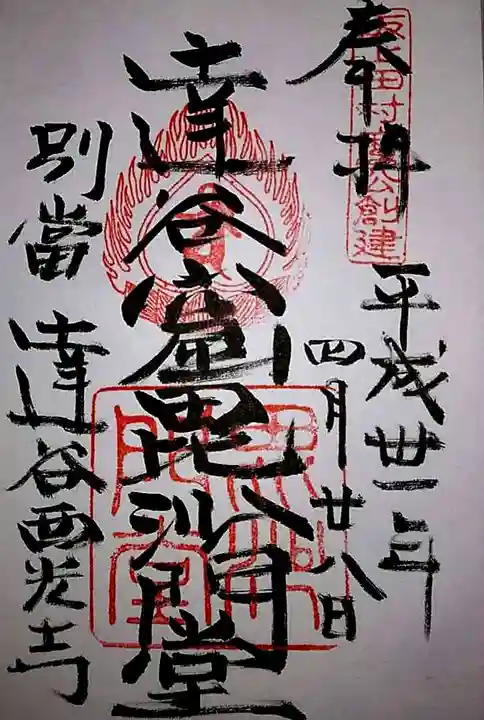 奉拝
坂上田村麿公創建
平成卅一年
四月廿八日
達谷窟毘沙門堂
別當
達谷西光寺